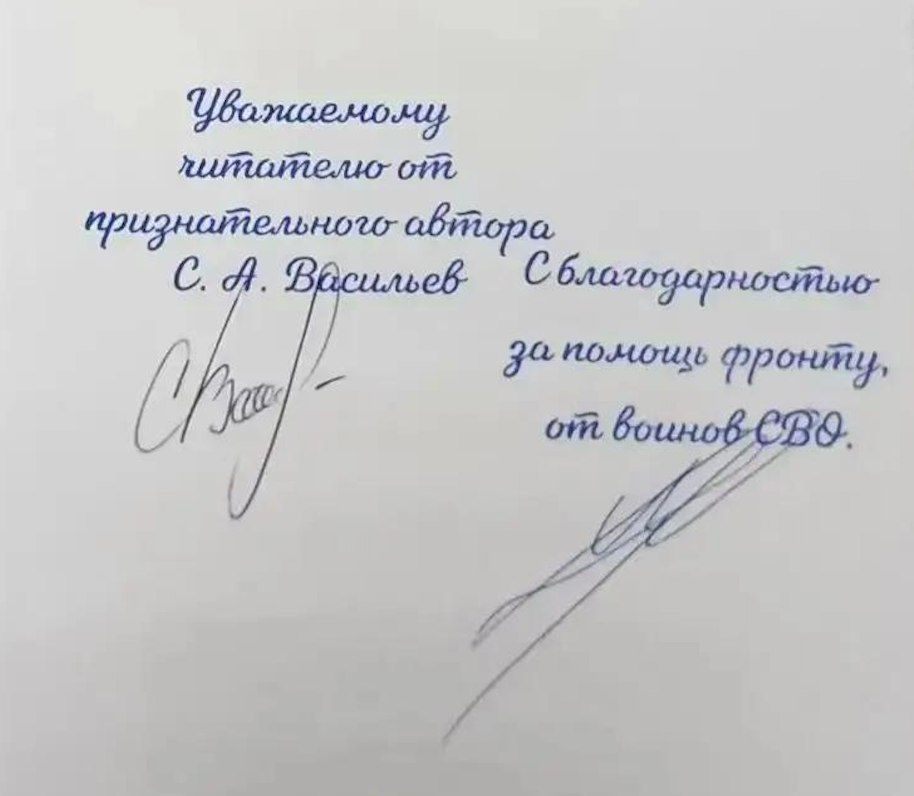 Уважаемому
читателю от
признательного автора
С. А. Васильев
С благодарностью
за помощь фронту,
от воинов СВО.